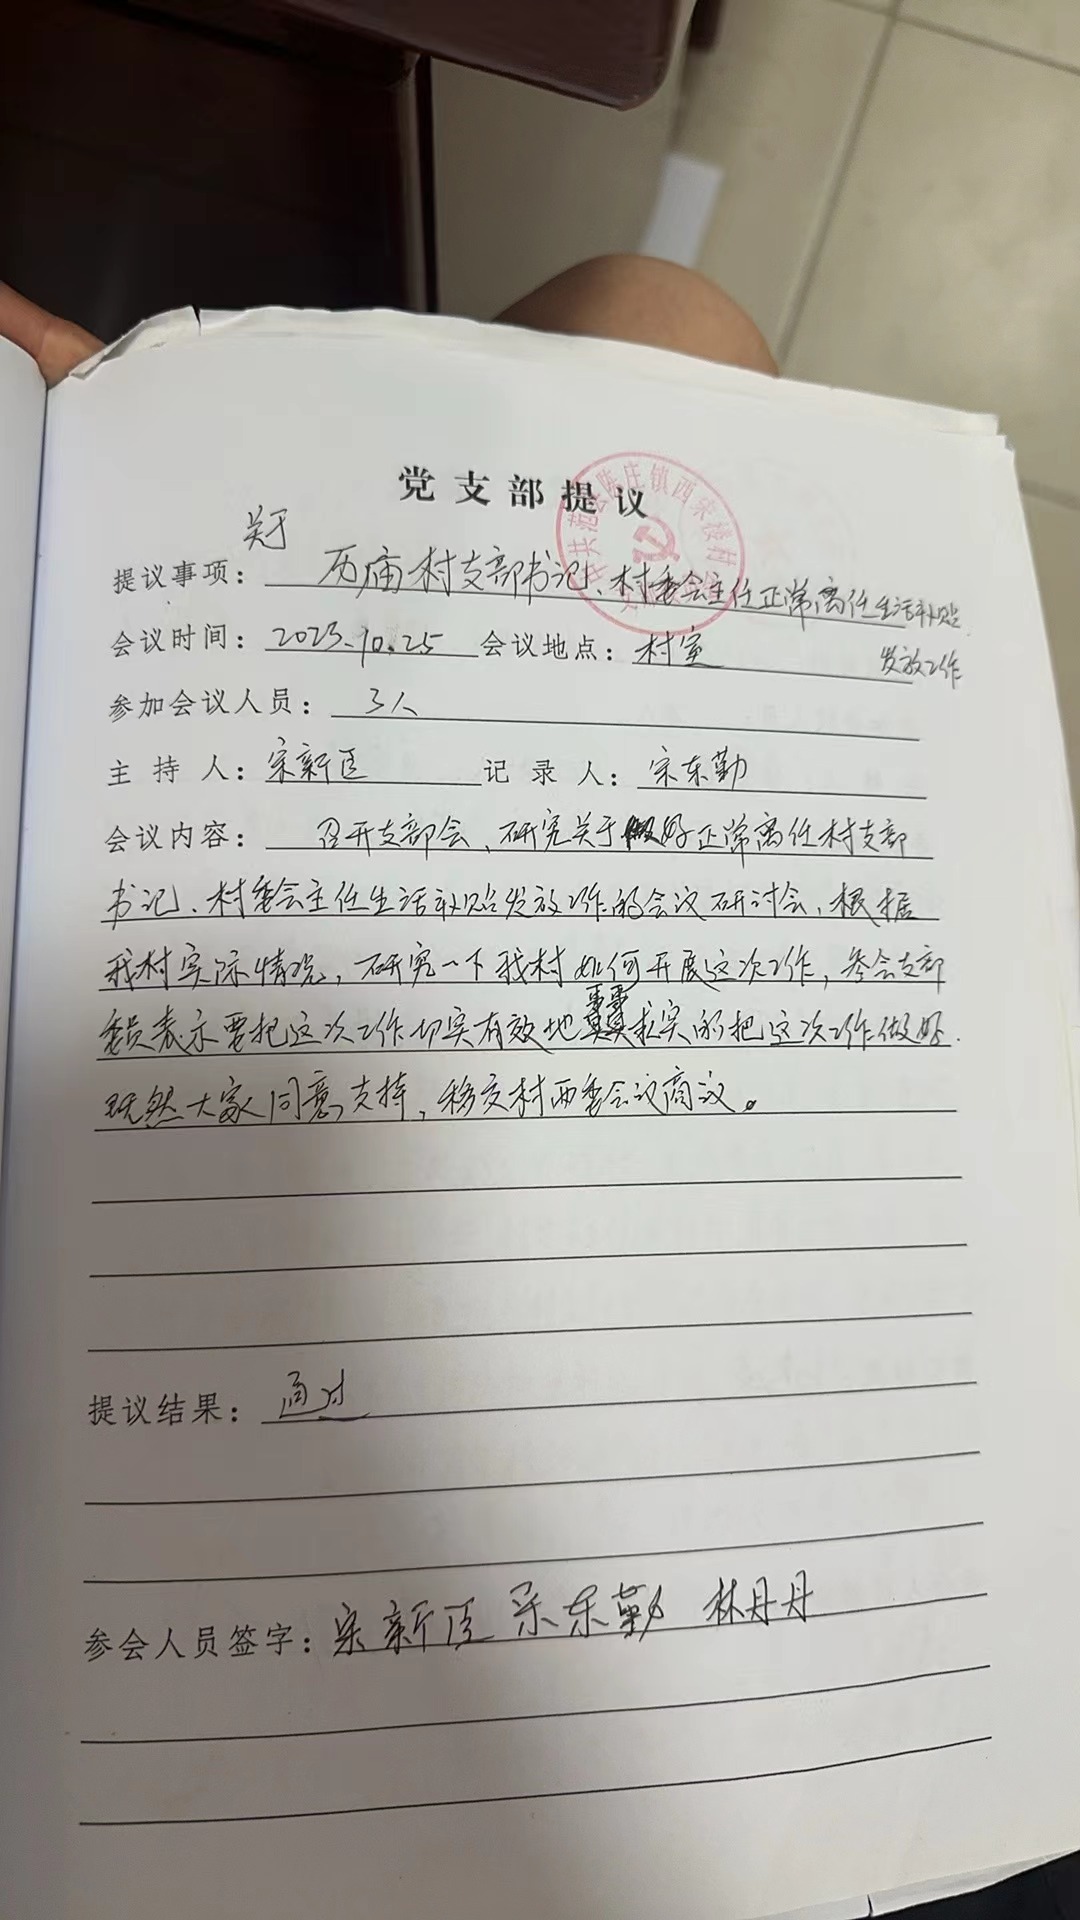 党支部提议
关于
提议事项：历庙村支部书记、村委会主任正常离任生活补贴
发放工作
会议时间：2023.10.25 会议地点：村室
参加会议人员：3人
主持人：宋新臣 记录人：宋东勤
会议内容：召开支部会、研究关于做好正常离任村支部
书记、村委会主任生活补贴发放工作的会议研讨会，根据
我村实际情况，研究一下我村如何开展这次工作，参会支部
委员表示要把这次工作切实有效地求实的把这次工作做好.
既然大家同意支持，移交村两委会议商议。
提议结果：通过
参会人员签字：宋新臣 宋东勤 林丹丹